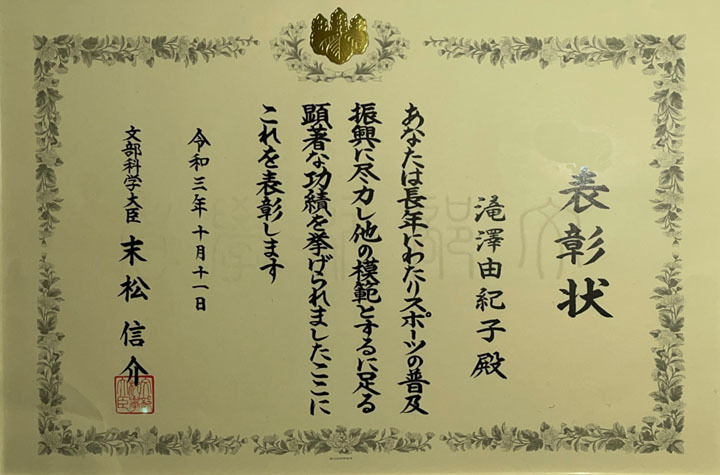 表彰状
滝澤由紀子殿
あなたは長年にわたりスポーツの普及
振興に尽力し他の模範とするに足る
顕著な功績を挙げられましたここに
これを表彰します
令和三年十月十一日
文部科学大臣 末松信介